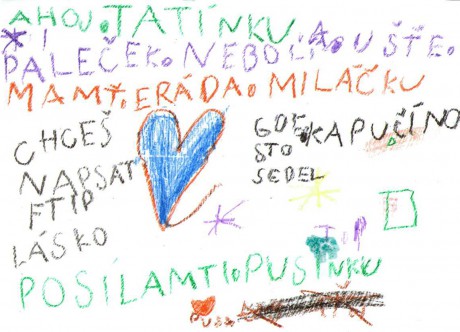 AHOJ. TATÍNKU. A.
I PALEČEK. NEBOLÍ. U ŠTE.
MAMT. ERÁDA. MILÁČKU
CHCEŠ
NAPSAT
FTIP
LÁSKO
GDE. KAPUČÍNO
STO
SEDEL
POSÍLAMTI. PUSINKU